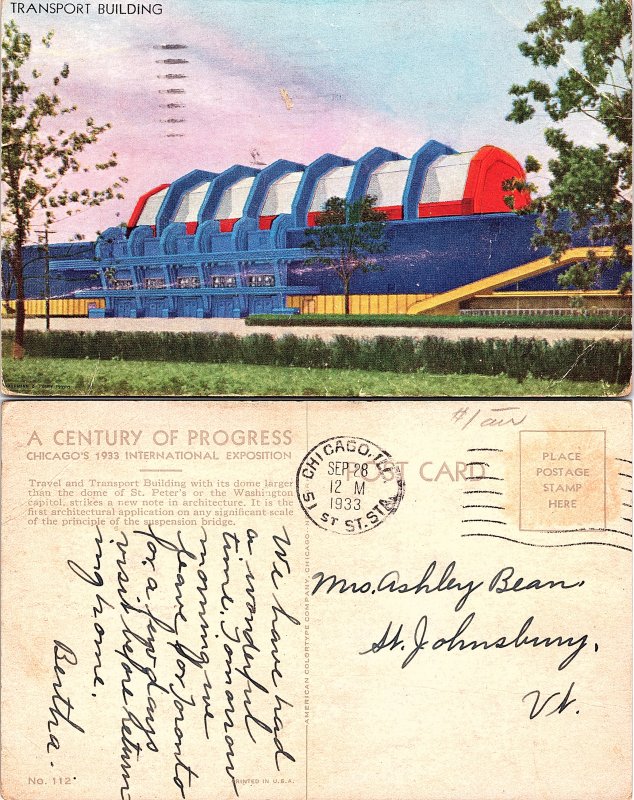 TRANSPORT BUILDING
A CENTURY OF PROGRESS
CHICAGO'S 1933 INTERNATIONAL EXPOSITION
Travel and Transport Building with its dome larger
than the dome of St. Peter's or the Washington
capitol, strikes a new note in architecture. It is the
first architectural application on any significant scale
of the principle of the suspension bridge.
We have had
a wonderful
time. Tomorrow
morning we
leave for Toronto
for a few days
visit before return
ing home.
Bertha.
No. 112
PRINTED IN U.S.A.
AMERICAN COLORTYPE COMPANY, CHICAGO
$1
POST CARD
CHICAGO, ILL.
SEP 28
12 M
1933
ST ST. STA.
PLACE
POSTAGE
STAMP
HERE
Mrs. Ashley Bean.
St. Johnsbury,
Vt.